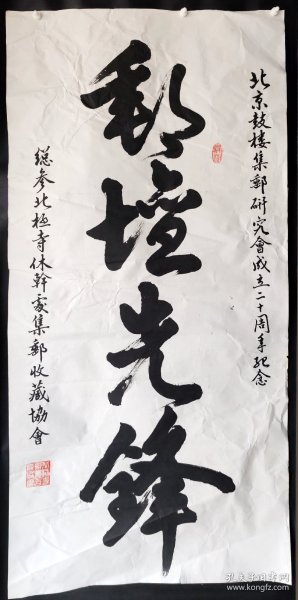 北京鼓樓集郵研究會成立二十周年纪念
郵壇先鋒
總参北極寺休幹處集郵收藏協會
孔夫子旧书网
www.kongfz.com